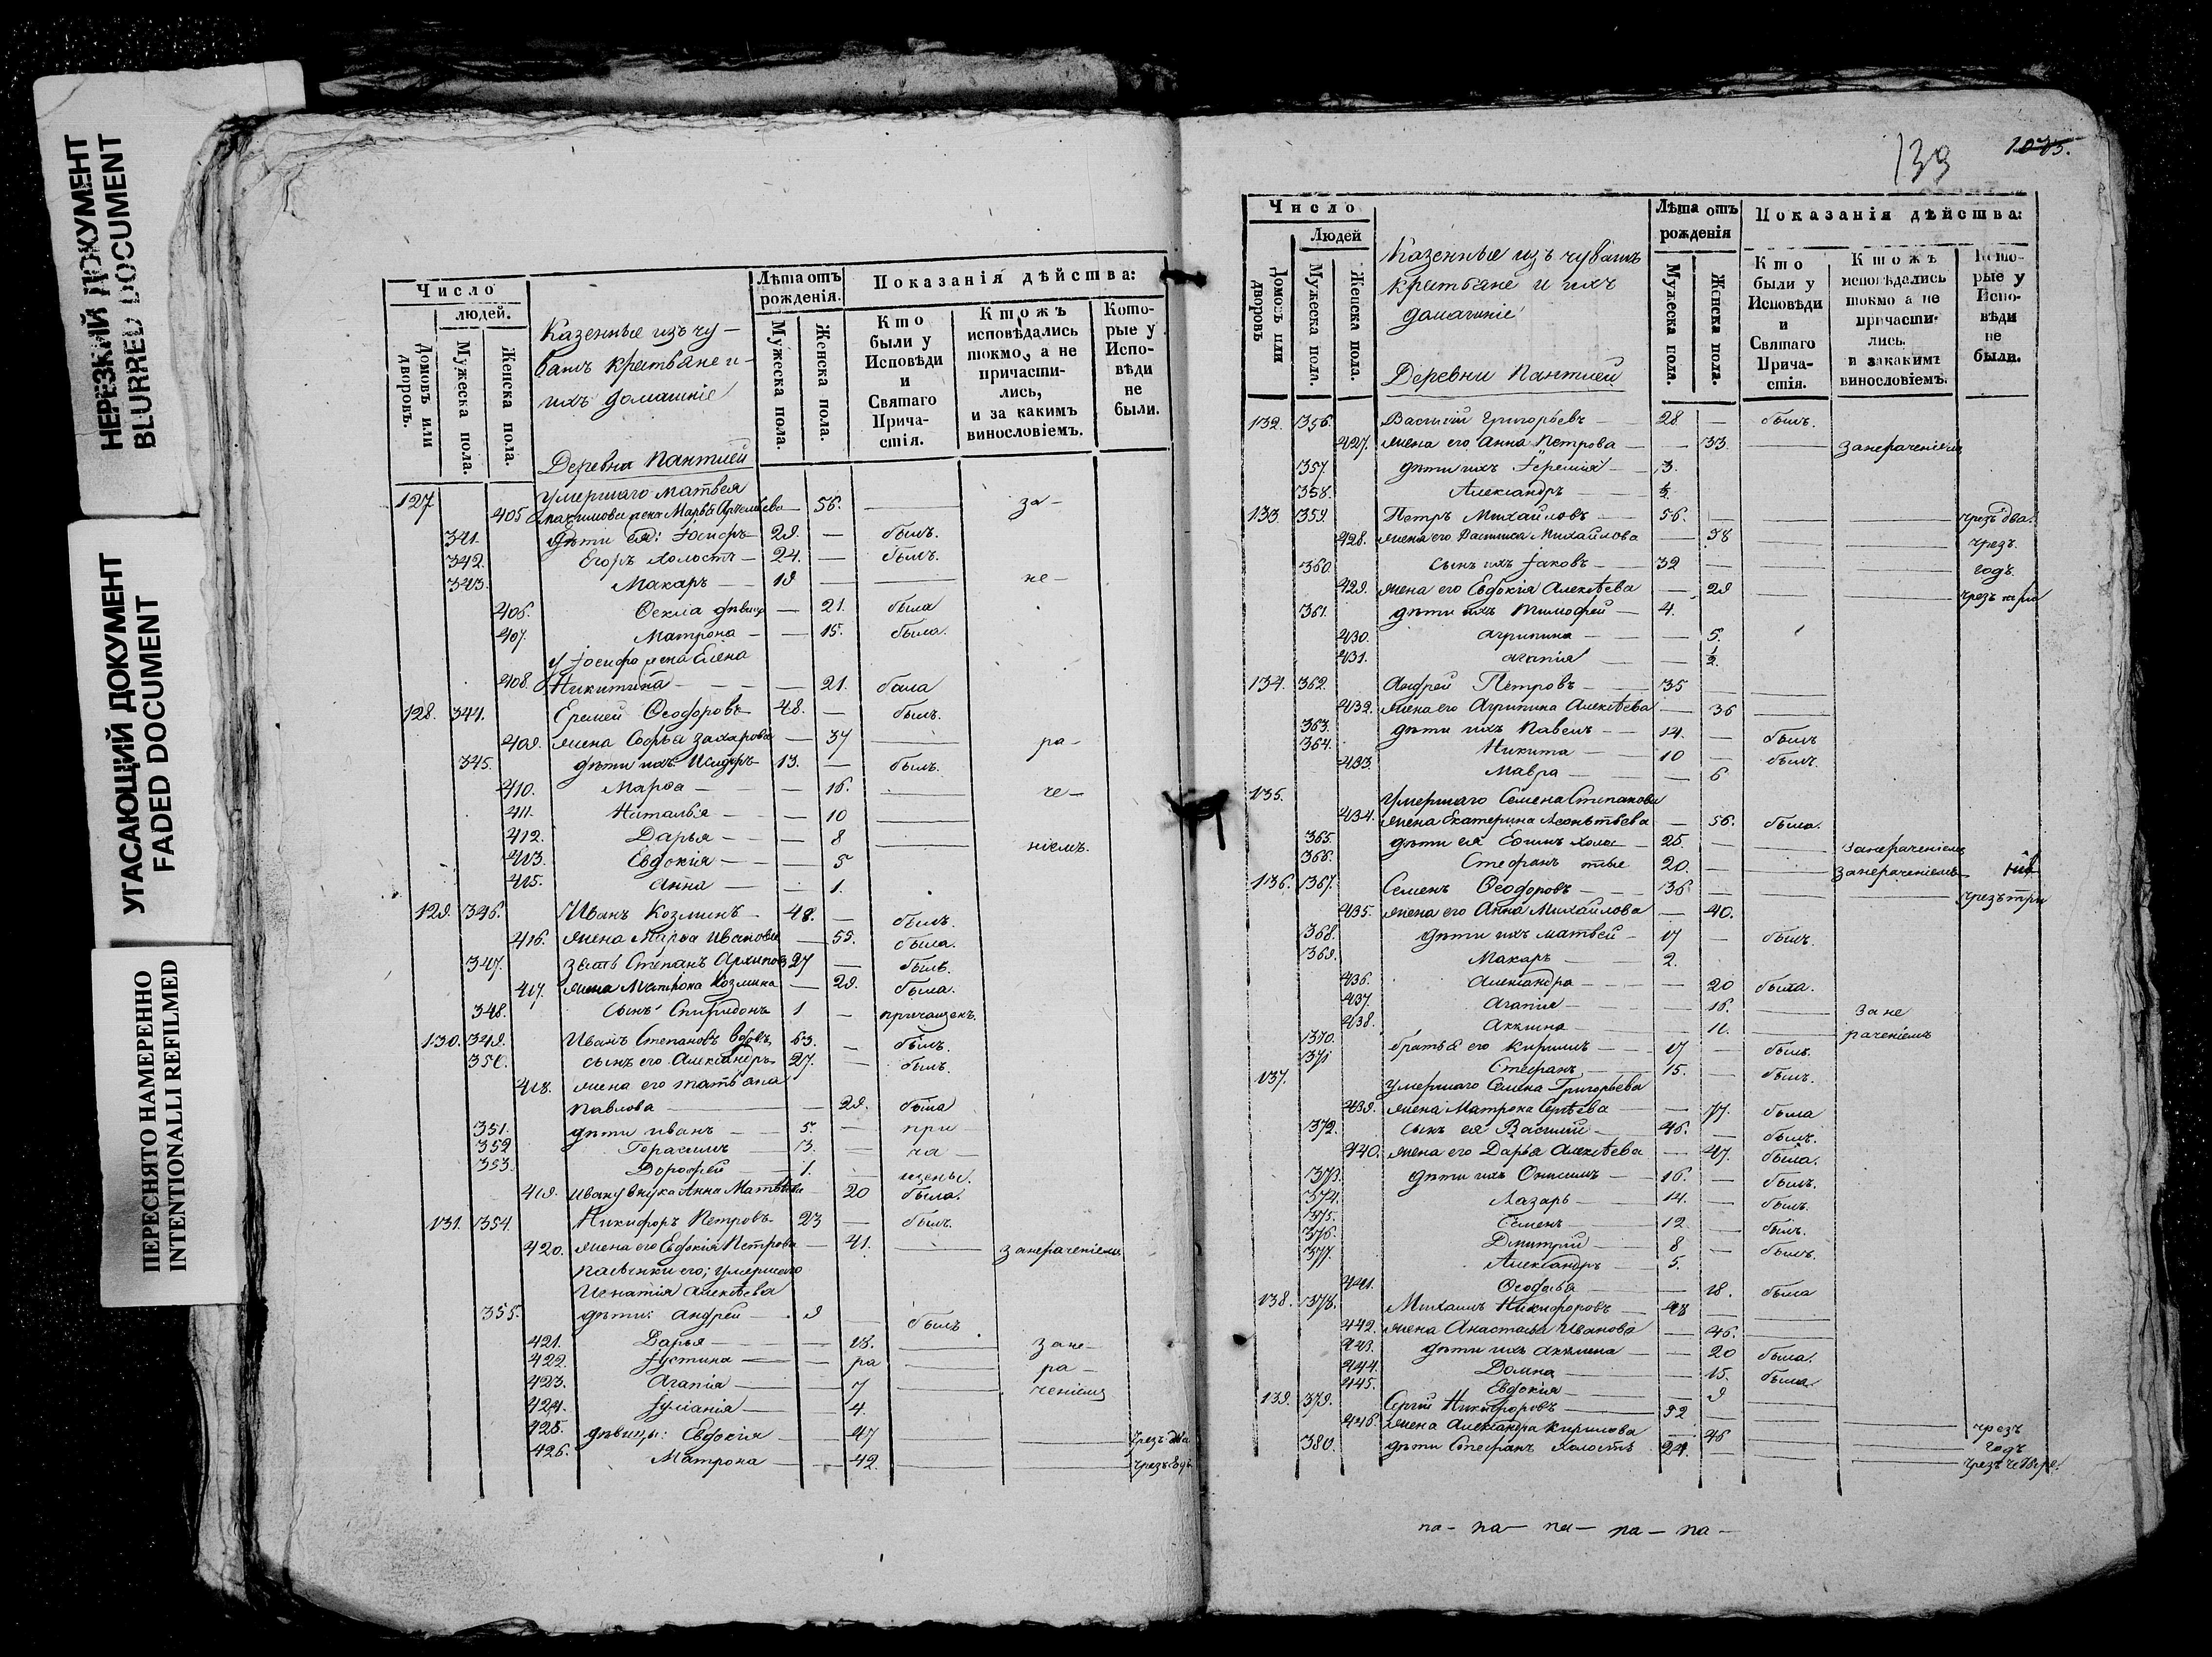 НЕРЕЗКИЙ ДОКУМЕНТ
BLURRED DOCUMENT
УГАСАЮЩИЙ ДОКУМЕНТ
FADED DOCUMENT
ПЕРЕСНЯТО НАМЕРЕННО
INTENTIONALLI REFILMED
Число
людей.
Домовъ или дворовъ.
Мужеска пола.
Женска пола.
Казенные изъ чу-
вашъ крестьяне и
ихъ домашніе
Деревни Пантией
Лѣта отъ рожденія.
Мужеска пола.
Женска пола.
Показанія дѣйства:
Кто были у Исповѣди и Святаго Причастія.
Ктожъ исповѣдались токмо, а не причастились, и за какимъ винословіемъ.
Которые у Исповѣди не были.
127 умершаго Матвея
405 жена Марья 56. за-
341. дѣти ея: Іосифъ 29. — былъ.
342. Егоръ холостъ — 24. — былъ.
343. Макаръ — 19 — не-
406. Ѳекла дѣвица — 21. была
407. Матрона — 15. была.
у Іосифа жена Елена
408. Никитина — 21. была
128. 344. Еремей Ѳеодоровъ 48. — былъ.
409. жена Софья Захарова — 37 ра-
345. дѣти ихъ Исидоръ 13. — былъ.
410. Марѳа — 16. че-
411. Наталья — 10
412. Дарья — 8
413. Евдокія — 5 ніемъ.
415. Анна — 1.
129. 346. Иванъ Козминъ — 48. — былъ.
416. жена Марѳа Иванова — 55. была.
347. зять Степанъ Архиповъ 27 — былъ.
417. жена Матрона Козмина — 29. была.
348. сынъ Спиридонъ 1 — причащенъ.
130. 349. Иванъ Степановъ вдовъ 63. — былъ.
350. сынъ его Александръ 27. — былъ.
418. жена его Татьяна
Павлова — 29. была
351. дѣти Иванъ — 5. — при
352 Герасимъ — 3. — ча
353. Дорофей — 1. — щены.
419. Ивану внука Анна Матвѣева 20 была.
131. 354 Никифоръ Петровъ 23 — былъ.
420. жена его Евдокія Петрова — 41. занераченіемъ
пасынки его; умершаго
Игнатія Алексѣева
355. дѣти: Андрей — 9 былъ
421. Дарья — 18. зане-
422. Іустина — ра ра-
423. Агапія — 7 ченіемъ
424. Іуліанія — 4.
425. дѣвицы: Евдокія — 47 чрезъ два
426. Матрона — 42. чрезъ годъ
139 1035.
Число
Людей
Домовъ или дворовъ
Мужеска пола.
Женска пола.
Казенные изъ чувашъ
крестьяне и ихъ
домашніе
Деревни Пантией
Лѣта отъ рожденія
Мужеска пола.
Женска пола.
Показанія дѣйства:
Кто были у Исповѣди и Святаго Причастія.
Ктожъ исповѣдались токмо а не причастились. и закакимъ винословіемъ.
Которые у Исповѣди не были.
132. 356. Василій Григорьевъ 28. — былъ.
427. жена его Анна Петрова — 33. занераченіемъ
357. дѣти ихъ Іеремія — 3.
358. Александръ — ½.
133. 359. Петръ Михайловъ — 56. чрезъ два.
428. жена его Василиса Михайлова — 58 чрезъ
360. сынъ ихъ Іаковъ — 32 — годъ.
429. жена его Евдокія Алексѣева — 29 чрезъ
361. дѣти ихъ Тимофей — 4.
430. Агрипина — 5.
431. Агапія — ½.
134. 362. Андрей Петровъ — 35
432. жена его Агрипина Алексѣева — 36
363. дѣти ихъ Павелъ — 14. — былъ
364. Никита — 10 — былъ.
433. Мавра — 6
135. Умершаго Семена Степанова
434. жена Екатерина Леонтьева — 56. была.
365. дѣти ея Ефимъ холос 25. — занераченіемъ
366. Стефанъ тые 20. — занераченіемъ
136. 367. Семенъ Ѳеодоровъ — 36 — чрезъ три
435. жена его Анна Михайлова — 40.
368. дѣти ихъ Матвей — 17 — былъ.
369. Макаръ — 2.
436. Александра — 20 была.
437. Агапія — 16. за не
438. Акилина — 11. раченіемъ
370. братья его Кирилъ — 17 — былъ.
371 Стефанъ — 15. — былъ.
137. умершаго Семена Григорьева
439. жена Матрона Сергѣева — 77. была
372. сынъ ея Василій — 46. — былъ.
440. жена его Дарья Алексѣева — 47. была.
373. дѣти ихъ Онисимъ — 16. — былъ.
374. Лазарь — 14. — былъ.
375. Семенъ — 12 — былъ.
376. Дмитрий — 8 — былъ.
377. Александръ — 5.
441. Ѳеодосья — 18. была
138. 378. Михаилъ Никифоровъ — 48
442. жена Анастасія Иванова — 46.
443. дѣти ихъ Акилина — 20 была.
444. Домна — 15. была
445. Евдокія — 9
139. 379. Сергій Никифоровъ — 52 чрезъ
446. жена Александра Кирилова — 46 годъ
380. дѣти Стефанъ холостъ 24. чрезъ четыре.
па- па- па- па- па-